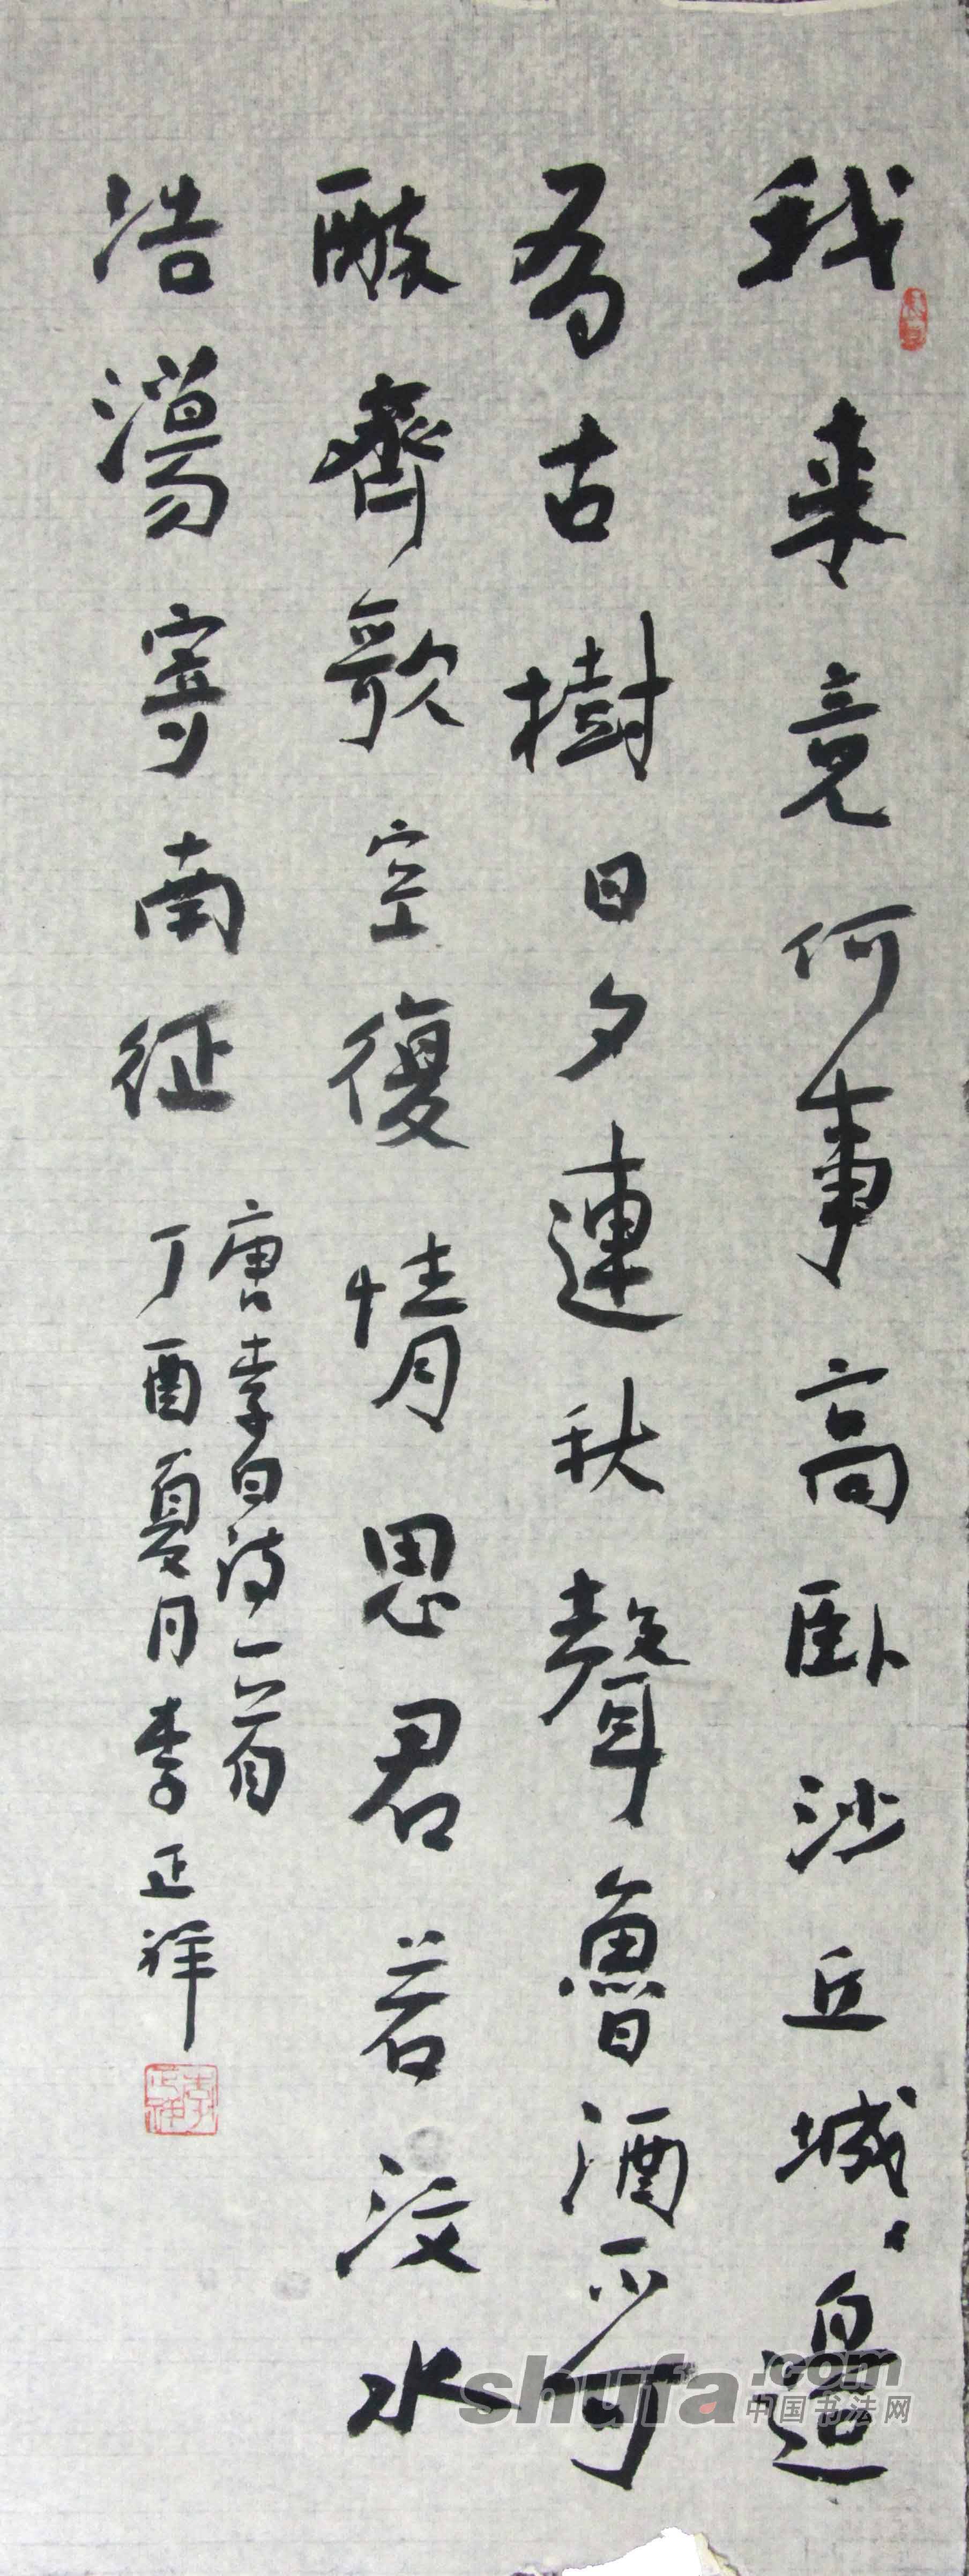 我來竟何事高臥沙丘城、邊
有古樹日夕連秋聲魯酒不可
醉齊歌空復情思君若汶水
浩蕩寄南征
唐李白詩一首
丁酉夏月李正祥
shufa.com
中国书法网